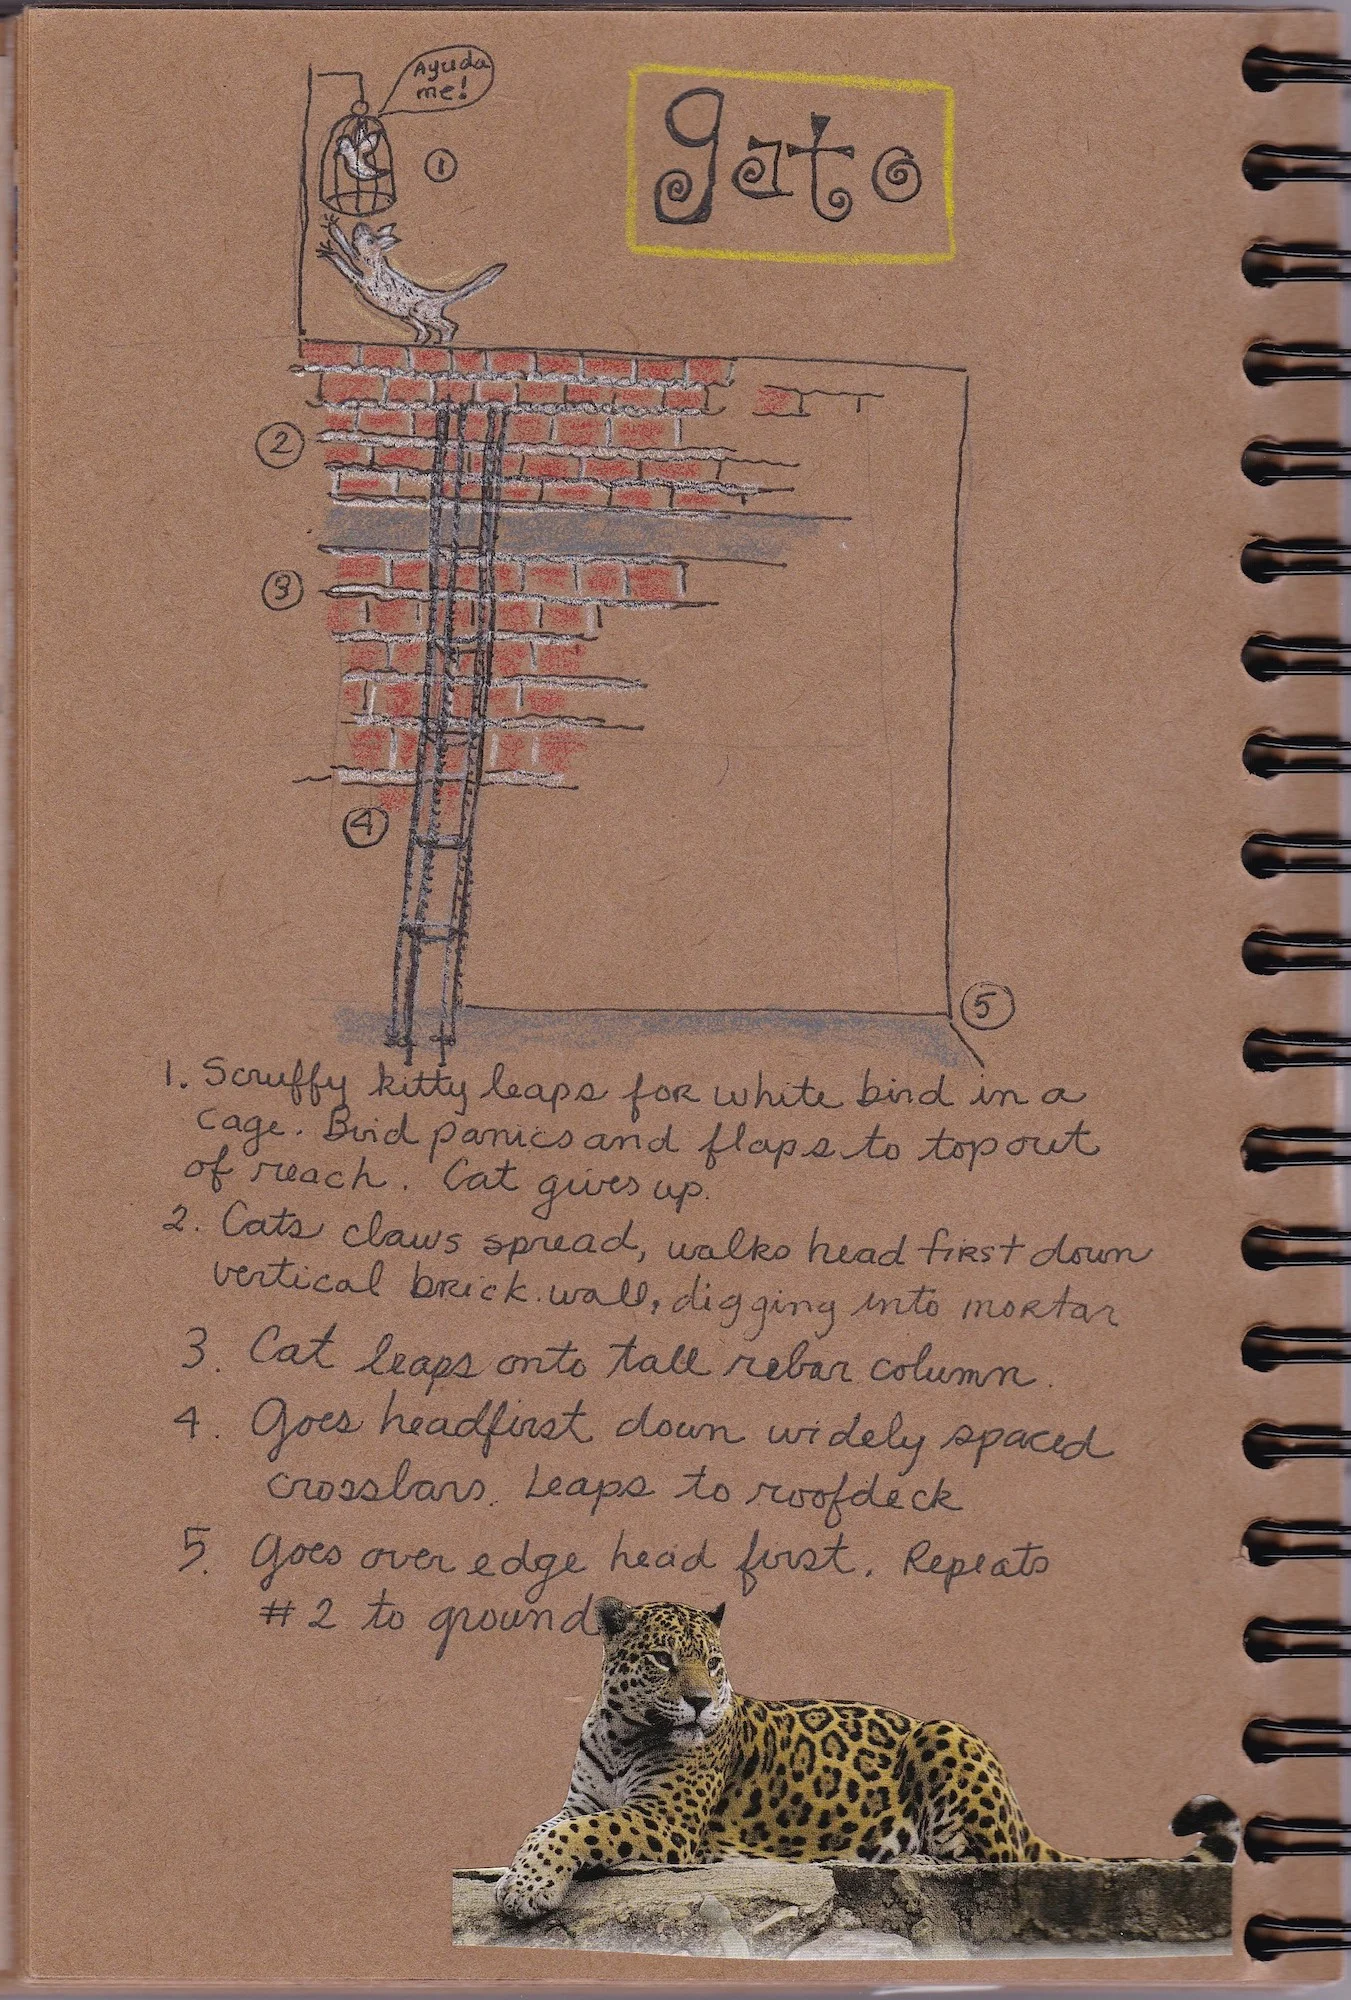 Ayuda
me!
gato
1
2
3
4
5
1. Scruffy kitty leaps for white bird in a
cage. Bird panics and flaps to top out
of reach. Cat gives up.
2. Cats claws spread, walks head first down
vertical brick wall, digging into mortar
3. Cat leaps onto tall rebar column.
4. Goes headfirst down widely spaced
crossbars. Leaps to roofdeck
5. Goes over edge head first. Repeats
#2 to ground